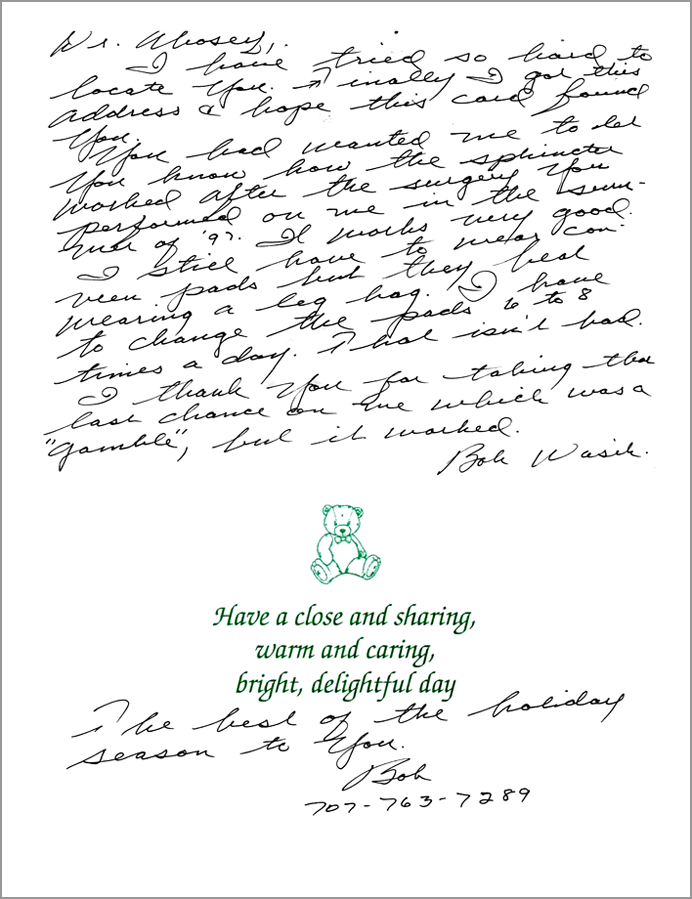 Dr. Mosey,
I have tried so hard to
locate You. Finally I got this
address & hope this card found
You.
You had wanted me to let
You know how the sphincter
worked after the surgery You
performed on me in the sum-
mer of '97. It works very good.
I still have to wear con-
veen pads but they beat
wearing a leg bag. I have
to change the pads 6 to 8
times a day. That isn't bad.
I thank You for taking that
last chance on me which was a
"gamble", but it worked.
Bob Wasik.
Have a close and sharing,
warm and caring,
bright, delightful day
The best of the holiday
season to You.
Bob
707-763-7289